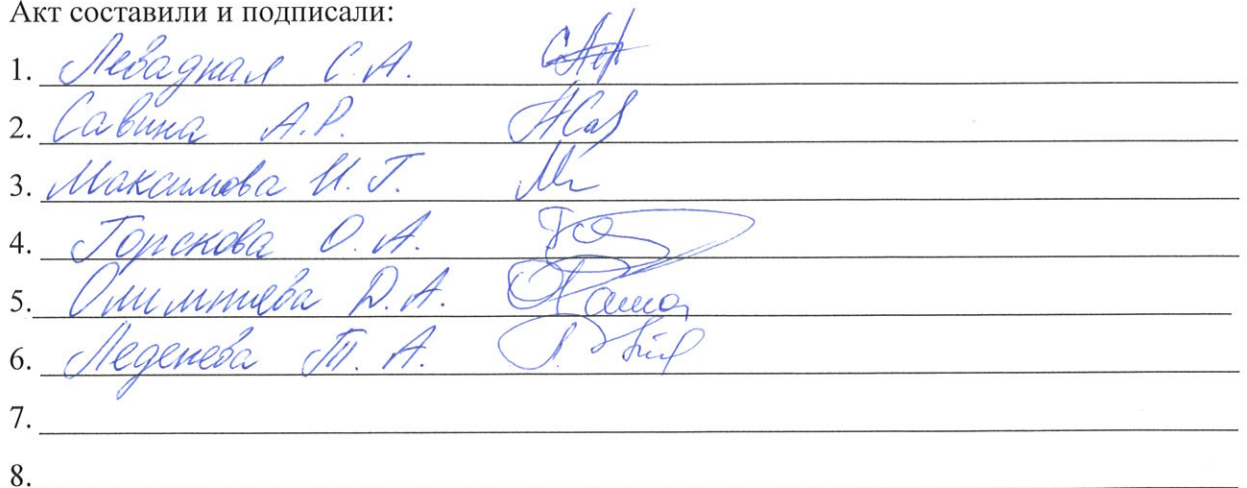 Акт составили и подписали:
1. Левадная С. А.
2. Савина А. Р.
3. Максимова И. Г.
4. Горскова О. А.
5. Олимпиева Д. А.
6. Леденева Т. А.
7.
8.